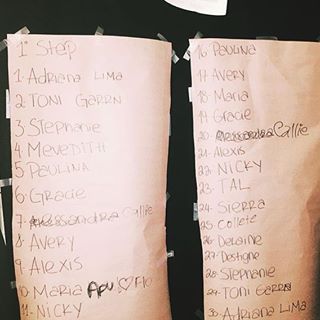 1° Step
1- Adriana Lima
2- TONI GARRN
3 Stephanie
4 MEVEDITH
5 PAULINA
6- Gracie
7- Alessandra Callie
8- AVERY
9 Alexis
10 MARIA
11- NICKY
16- PAULINA
17 AVERY
18 Maria
19 Gracie
20- Alessandra Callie
21- Alexis
22- NICKY
23- TAL
24- Sierra
25- Collete
26- Delaine
27- Destigne
28- Stephanie
29- TONI GARRN
30- Adriana Lima